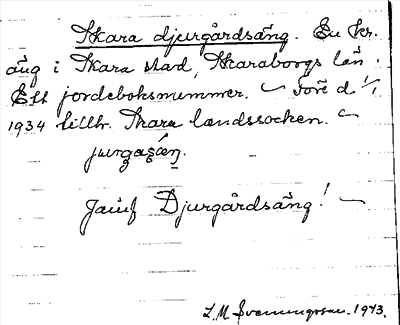 Skara djurgårdsäng. En kr.
äng i Skara stad, Skaraborgs län.
Ett jordeboksnummer. – Före d 1/1
1934 tillh. Skara landssocken. –
jurgaṣäŋ.
Jämf Djurgårdsäng! –
L.M. Svenungsson. 1943.